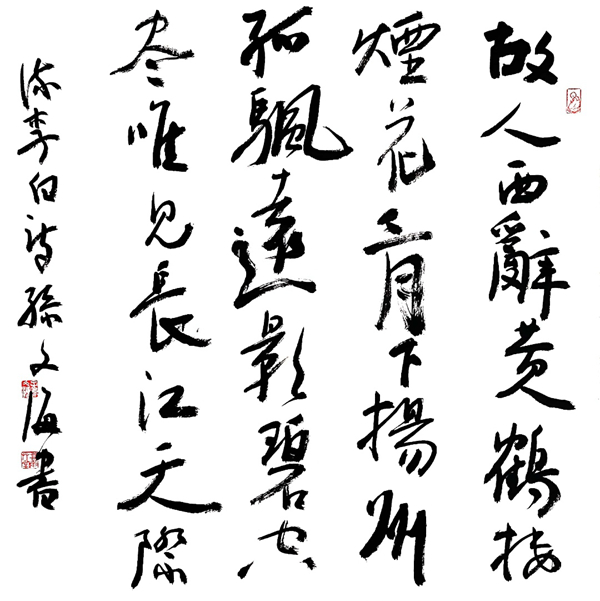 故人西辭黄鶴楼
煙花三月下揚州
孤颿遠影碧空
尽唯見長江天際
流李白詩孫文海書